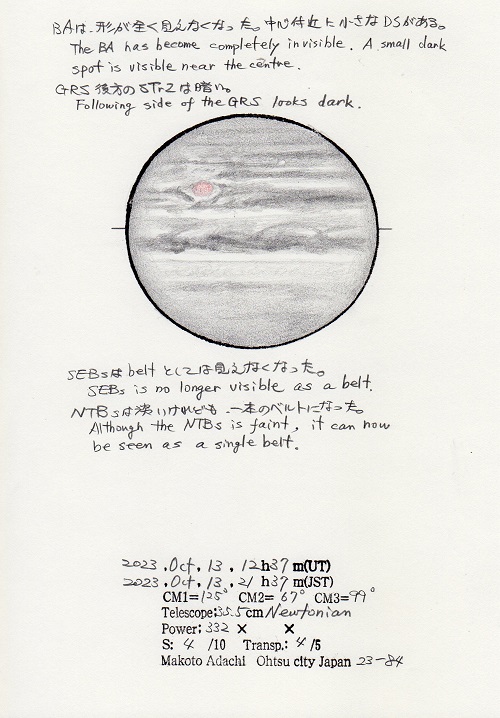 BAは、形が全く見えなくなった。中心付近に小さなDSがある。
The BA has become completely invisible. A small dark
spot is visible near the centre.
GRS後方のSTrZは暗い。
Following side of the GRS looks dark.
SEBsはbeltとしては見えなくなった。
SEBs is no longer visible as a belt.
NTBsは淡いけれども、一本のベルトになった。
Although the NTBs is faint, it can now
be seen as a single belt.
2023.Oct.13.12h37m(UT)
2023.Oct.13.21h37m(JST)
CM1=125° CM2=67° CM3=99°
Telescope;35.5cm Newtonian
Power; 332 × ×
S: 4 /10 Transp.: 4 /5
Makoto Adachi Ohtsu city Japan 23-84